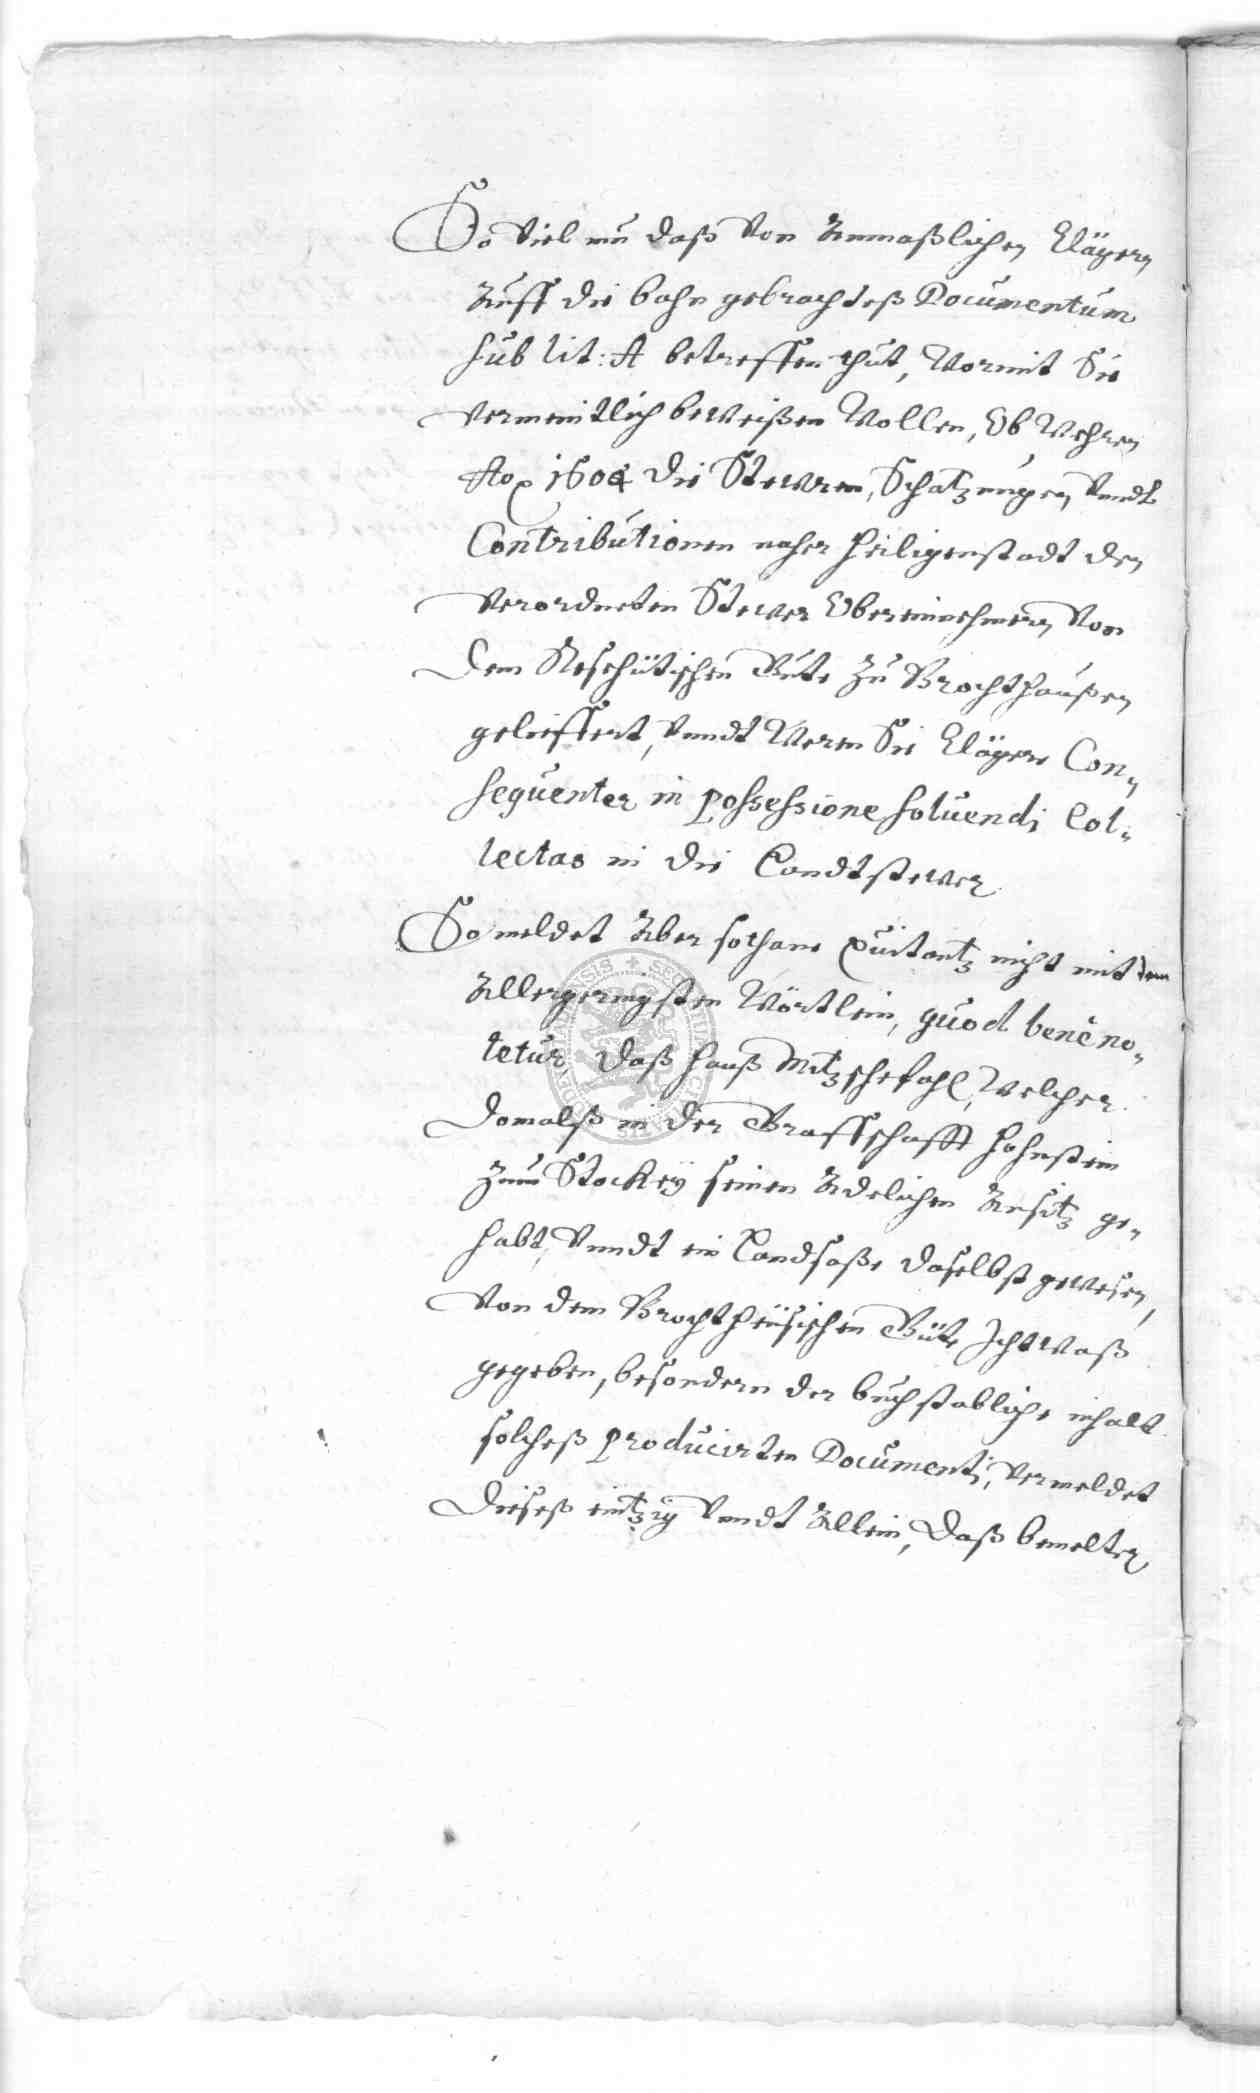 So Viel nun daß Von Anmaßlichen Klägern
Auff die bahn gebrachteß Documentum
sub lit: A betreffen thut, Wormit Sie
Vermeintlich beweißen Wollen, Ob Wehren
Ao 1604 die Stewren, Schatzungen, Vndt
Contributionen naher Heiligenstadt den
Verordneten Stewer Obereinnehmern Von
dem Gute Zu Brochthaußen
gelieffert, Vundt Weren Sie Kläger Con-
sequenter in possessione solvendi Col-
lectas in die Landtstewer
So meldet Aber sothane Quitantz nicht mit dem
Allergeringsten Wörtlein, quod benè no-
tetur, daß Hanß Mitzschefahl, Welcher
domalß in der Graffschafft Hohnstein
Zum Stockey seinen Adelichen Ansitz ge-
habt, Vundt ein Landsaße daselbst gewesen,
Von dem Brochtheüsischen Güte Ichtwaß
gegeben, besondern der buchstabliche inhalt
solcheß producirten Documenti, Vermeldet
dieseß eintzig Vundt Allein, daß bemelter